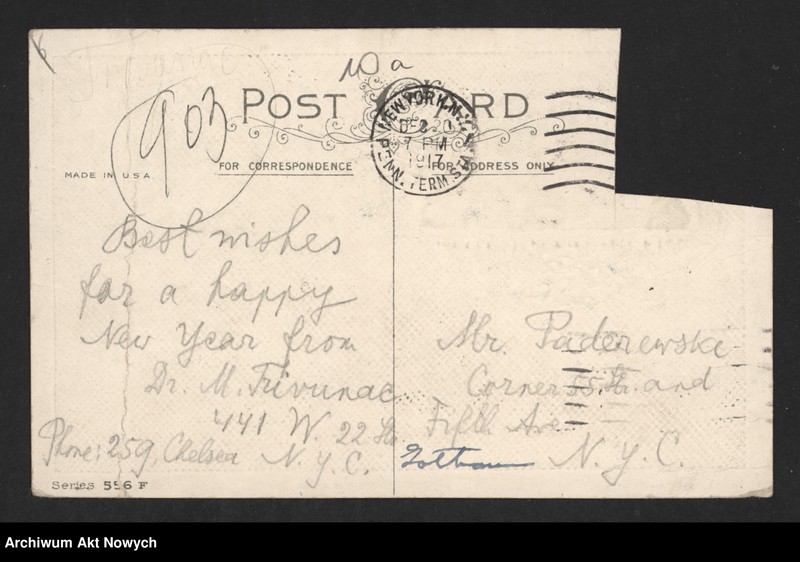 Trivunac
10 a
903
POST CARD
NEW YORK, N.Y.
DEC 30
7 PM
1917
PENN. TERM. STA.
FOR CORRESPONDENCE
FOR ADDRESS ONLY
MADE IN U.S.A.
Best wishes
for a happy
New Year from
Dr. M. Trivunac
441 W. 22 Str.
Phone: 259, Chelsea N.Y.C.
Mr. Paderewski
Corner 55 Str. and
Fifth Ave.
Gotham N.Y.C.
Series 556 F
Archiwum Akt Nowych